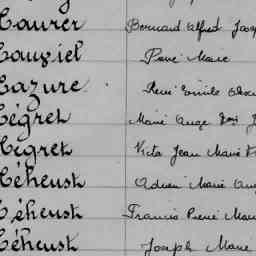 Lourer Bernard Alfred Josep
Louviel Pierre Marie
Lazure René Emile
Légret Marie Ange
Légret Victor Jean Marie
Léheust Adrien Marie Aug
Léheust Francis Pierre Mari
Léheust Joseph Marie